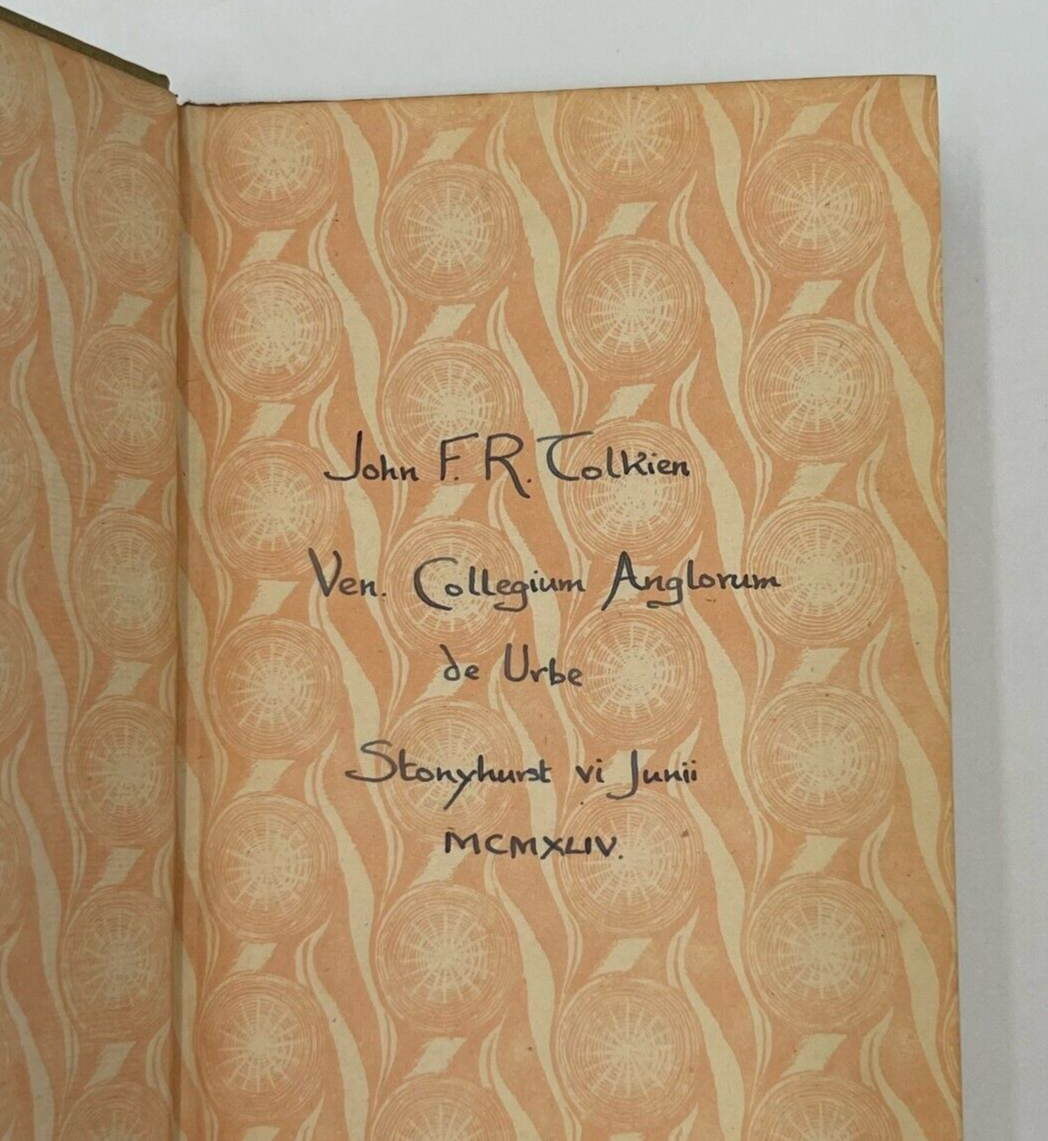 John F. R. Tolkien
Ven. Collegium Anglorum
de Urbe
Stonyhurst vi Junii
MCMXLIV.